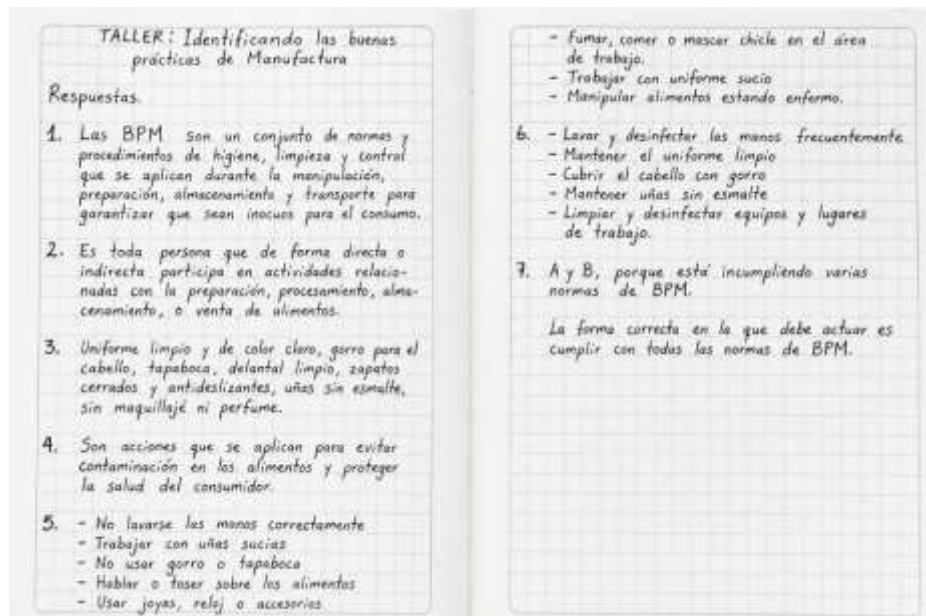 TALLER: Identificando las buenas
prácticas de Manufactura
Respuestas.
1. Las BPM son un conjunto de normas y
procedimientos de higiene, limpieza y control
que se aplican durante la manipulación,
preparación, almacenamiento y transporte para
garantizar que sean inocuos para el consumo.
2. Es toda persona que de forma directa o
indirecta participa en actividades relacio-
nadas con la preparación, procesamiento, alma-
cenamiento, o venta de alimentos.
3. Uniforme limpio y de color claro, gorro para el
cabello, tapaboca, delantal limpio, zapatos
cerrados y antideslizantes, uñas sin esmalte,
sin maquillaje ni perfume.
4. Son acciones que se aplican para evitar
contaminación en los alimentos y proteger
la salud del consumidor.
5. - No lavarse las manos correctamente
- Trabajar con uñas sucias
- No usar gorro o tapaboca
- Hablar o toser sobre los alimentos
- Usar joyas, reloj o accesorios
- Fumar, comer o mascar chicle en el área
de trabajo.
- Trabajar con uniforme sucio
- Manipular alimentos estando enfermo.
6. - Lavar y desinfectar las manos frecuentemente
- Mantener el uniforme limpio
- Cubrir el cabello con gorro
- Mantener uñas sin esmalte
- Limpiar y desinfectar equipos y lugares
de trabajo.
7. A y B, porque está incumpliendo varias
normas de BPM.
La forma correcta en la que debe actuar es
cumplir con todas las normas de BPM.